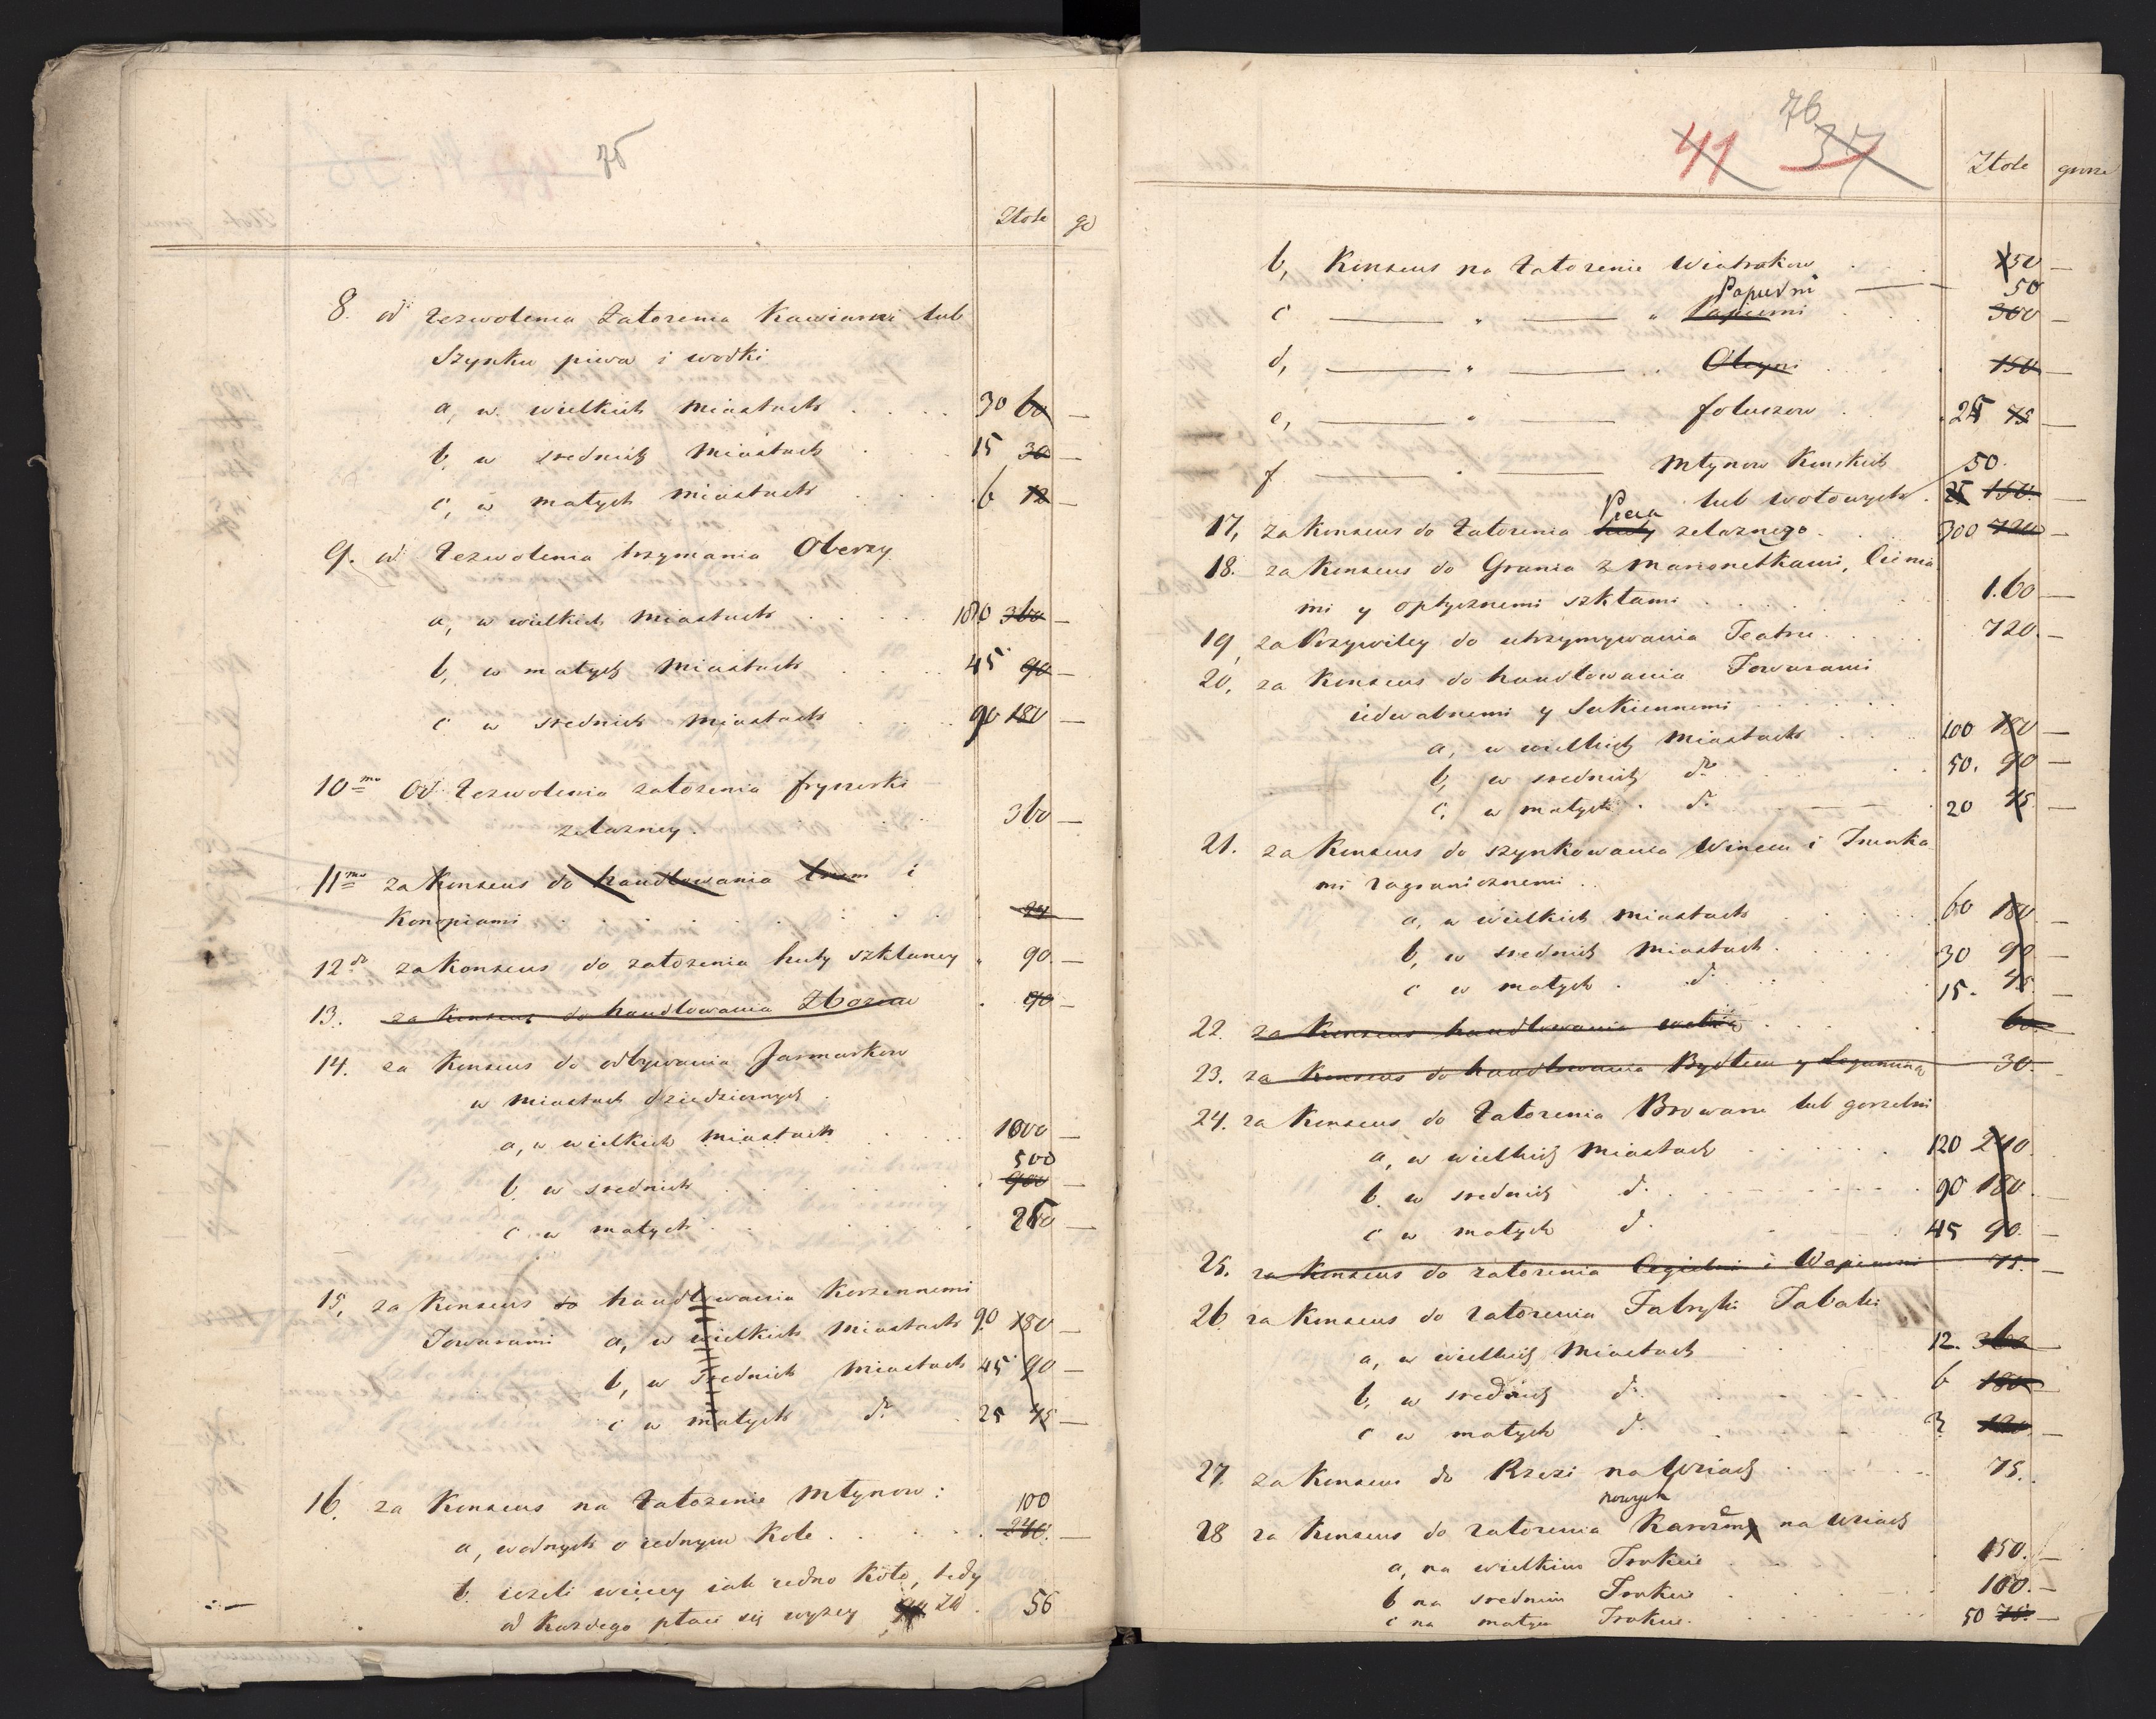 75
Złote gr
8. od Zezwolenia Założenia Kawiarni lub
Szynku piwa i wodki
a, w wielkich Miastach . . . . 30 60 —
b, w srednich Miastach . . 15 30 —
c, w małych Miastach . . . . 6 12 —
9. od Zezwolenia trzymania Oberzy
a, w wielkich Miastach . . . . 180 360 —
b, w małych Miastach . . . . 45 90 —
c w srednich Miastach . . . . 90 180 —
10mo Od Zezwolenia założenia fryszerki
zelazney. 360 —
11mo za Konsens do handlowania i
Konopiami . . . . 24
12do za Konsens do założenia huty szklanney . 90. —
13. za Konsens do handlowania Zbozem . 90 —
14. za Konsens do odbywania Jarmarkow
w Miastach dziedzicznych .
a, w wielkich Miastach . . . 1000 —
500
b. w srednich . . . . . 900 —
c w małych . . . . . . 250 —
15, za Konsens do handlowania Korzennemi
Towarami a, w wielkich Miastach 90 180 —
b, w srednich Miastach 45 90 —
c w małych do . 25 45 —
16. za Konsens na Założenie Młynow :
100
a, wodnych o iednym Kole . . . . . 240. —
b. iezeli więcey iak iedno Koło, tedy
od kazdego płaci się wyzey Zł . 56
41 76 37
Złote grosze
b, Konsens na Założenie Wiatrakow . . . 150 —
Papierni — 50
c — " — " Papierni . . 300 —
d, — " — . Oleyni . . . 150 —
e, — " — foluszow . . 25 75 —
f — . — Młynow Konskich 50.
lub wołowych . 25 150. —
Pieca
17, za Konsens do Założenia huty zelaznego . . 300 720 —
18. za Konsens do Grania z Marionetkami, Cienia
mi y optycznemi szkłami . . . . . 1.60 —
19, za Przywiley do utrzymywania Teatru . . . . 720. —
20, za Konsens do handlowania Towarami
iedwabnemi y Sukiennemi . . . . . .
a, w wielkich Miastach . . . 100 180 —
b, w srednich do . . . . 50. 90 —
c, w małych . do . . . . 20 45. —
21. za Konsens do szynkowania Winem i Trunka
mi zagranicznemi . .
a, w wielkich Miastach . . . . . 60 180. —
b, w srednich Miastach . . . . . 30 90 —
c w małych . do . . . 15. 45. —
22. za Konsens handlowania wełną . . . . . 60.
23. za Konsens do handlowania Bydłem y Leguminą 30.
24. za Konsens do Założenia Browaru lub gorzelni
a, w wielkich Miastach . . . . . 120 240.
b. w srednich do . . . . . 90 180. —
c w małych do . . . . 45 90. —
25. za Konsens do założenia Cegielni i Wapienni 75. —
26 za Konsens do założenia Fabryki Tabaki
a, w wielkich Miastach . . . . 12. 360 —
b, w srednich do . . . . 6 180 —
c w małych do . . . . 3 120 —
27. za Konsens do Rzezi na Wsiach . . . . . 75.
nowych
28 za Konsens do założenia Karczmy na Wsiach
a, na wielkim Trakcie . . . . 150. —
b na srednim Trakcie . . . . 100. —
c na małym Trakcie . . . . . 50 75. —